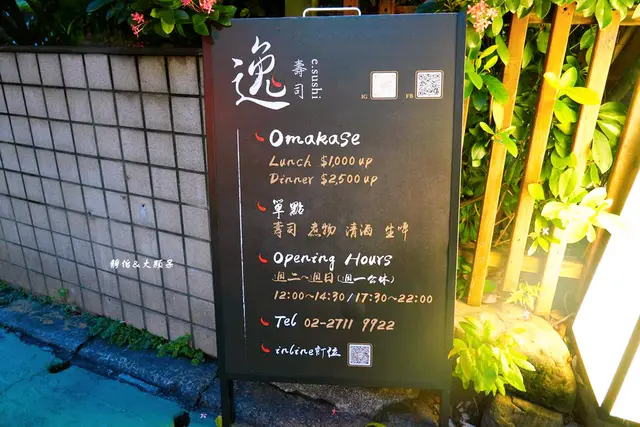 逸
壽司
e.sushi
IG
FB
Omakase
Lunch $1,000 up
Dinner $2,500 up
單點
壽司 煮物 清酒 生啤
Opening Hours
週二~週日(週一公休)
12:00~14:30/17:30~22:00
Tel 02-2711 9922
inline訂位
靜怡&大顆呆